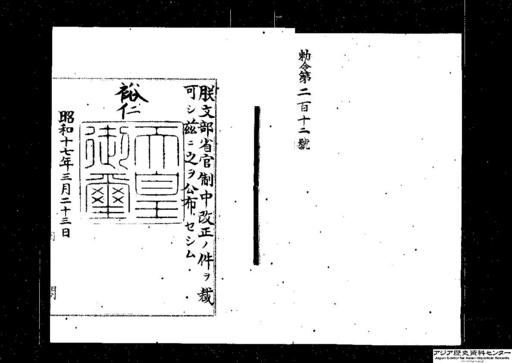 勅令第二百十二號
朕文部省官制中改正ノ件ヲ裁
可シ茲ニ之ヲ公布セシム
裕仁
天皇
御璽
昭和十七年三月二十三日
アジア歴史資料センター
Japan Center for Asian Historical Records